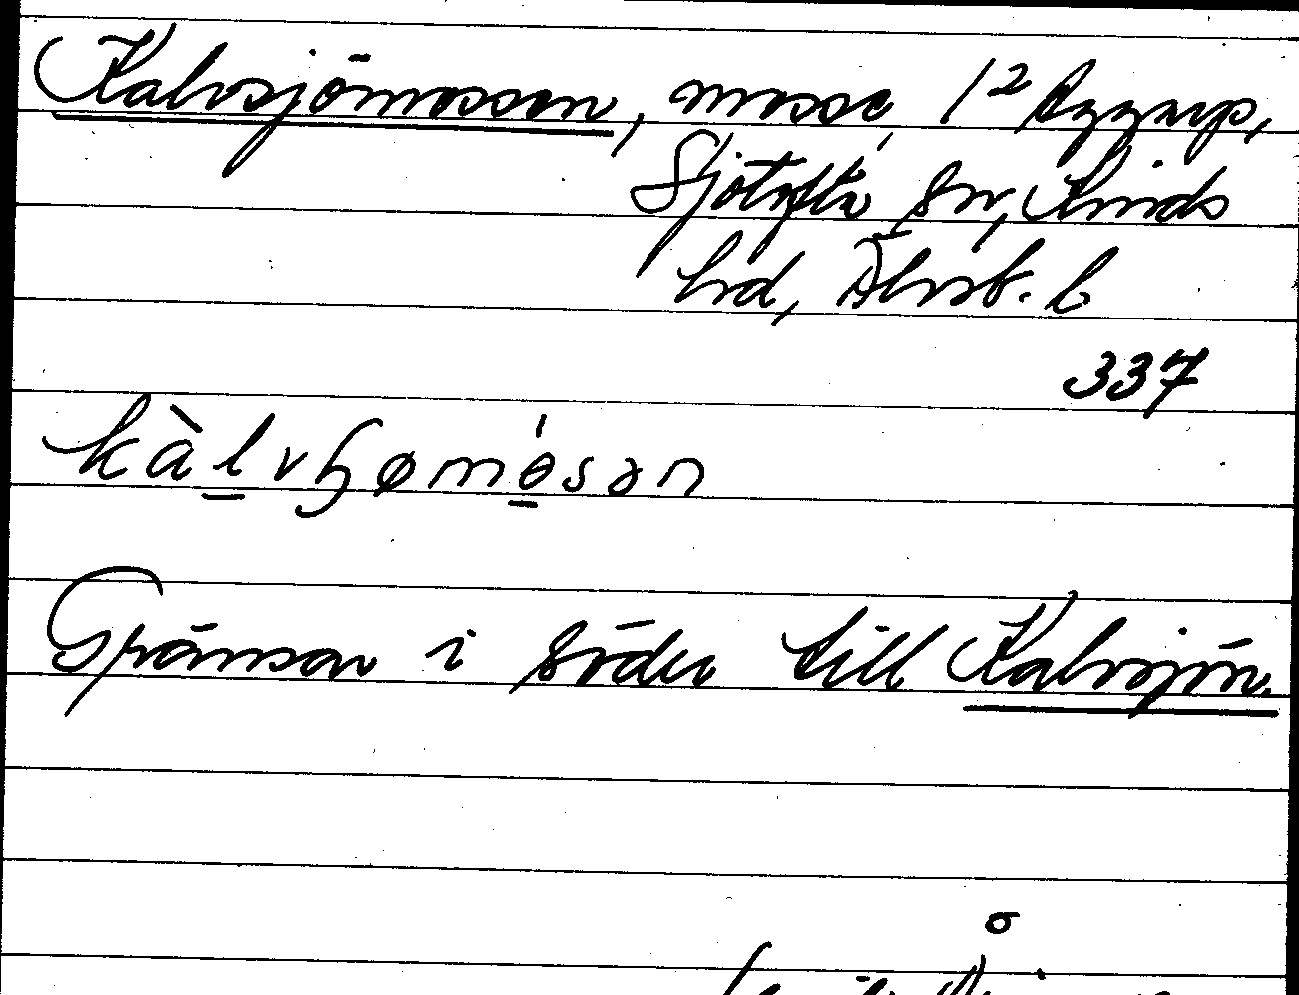 Kalvsjömossen, mosse, 1² Ryggarp,
Sjötofta sn, Kinds
hd, Älvsb. l
337
kàlvꜧømɵ́sən
Gränsar i söder till Kalvsjön.